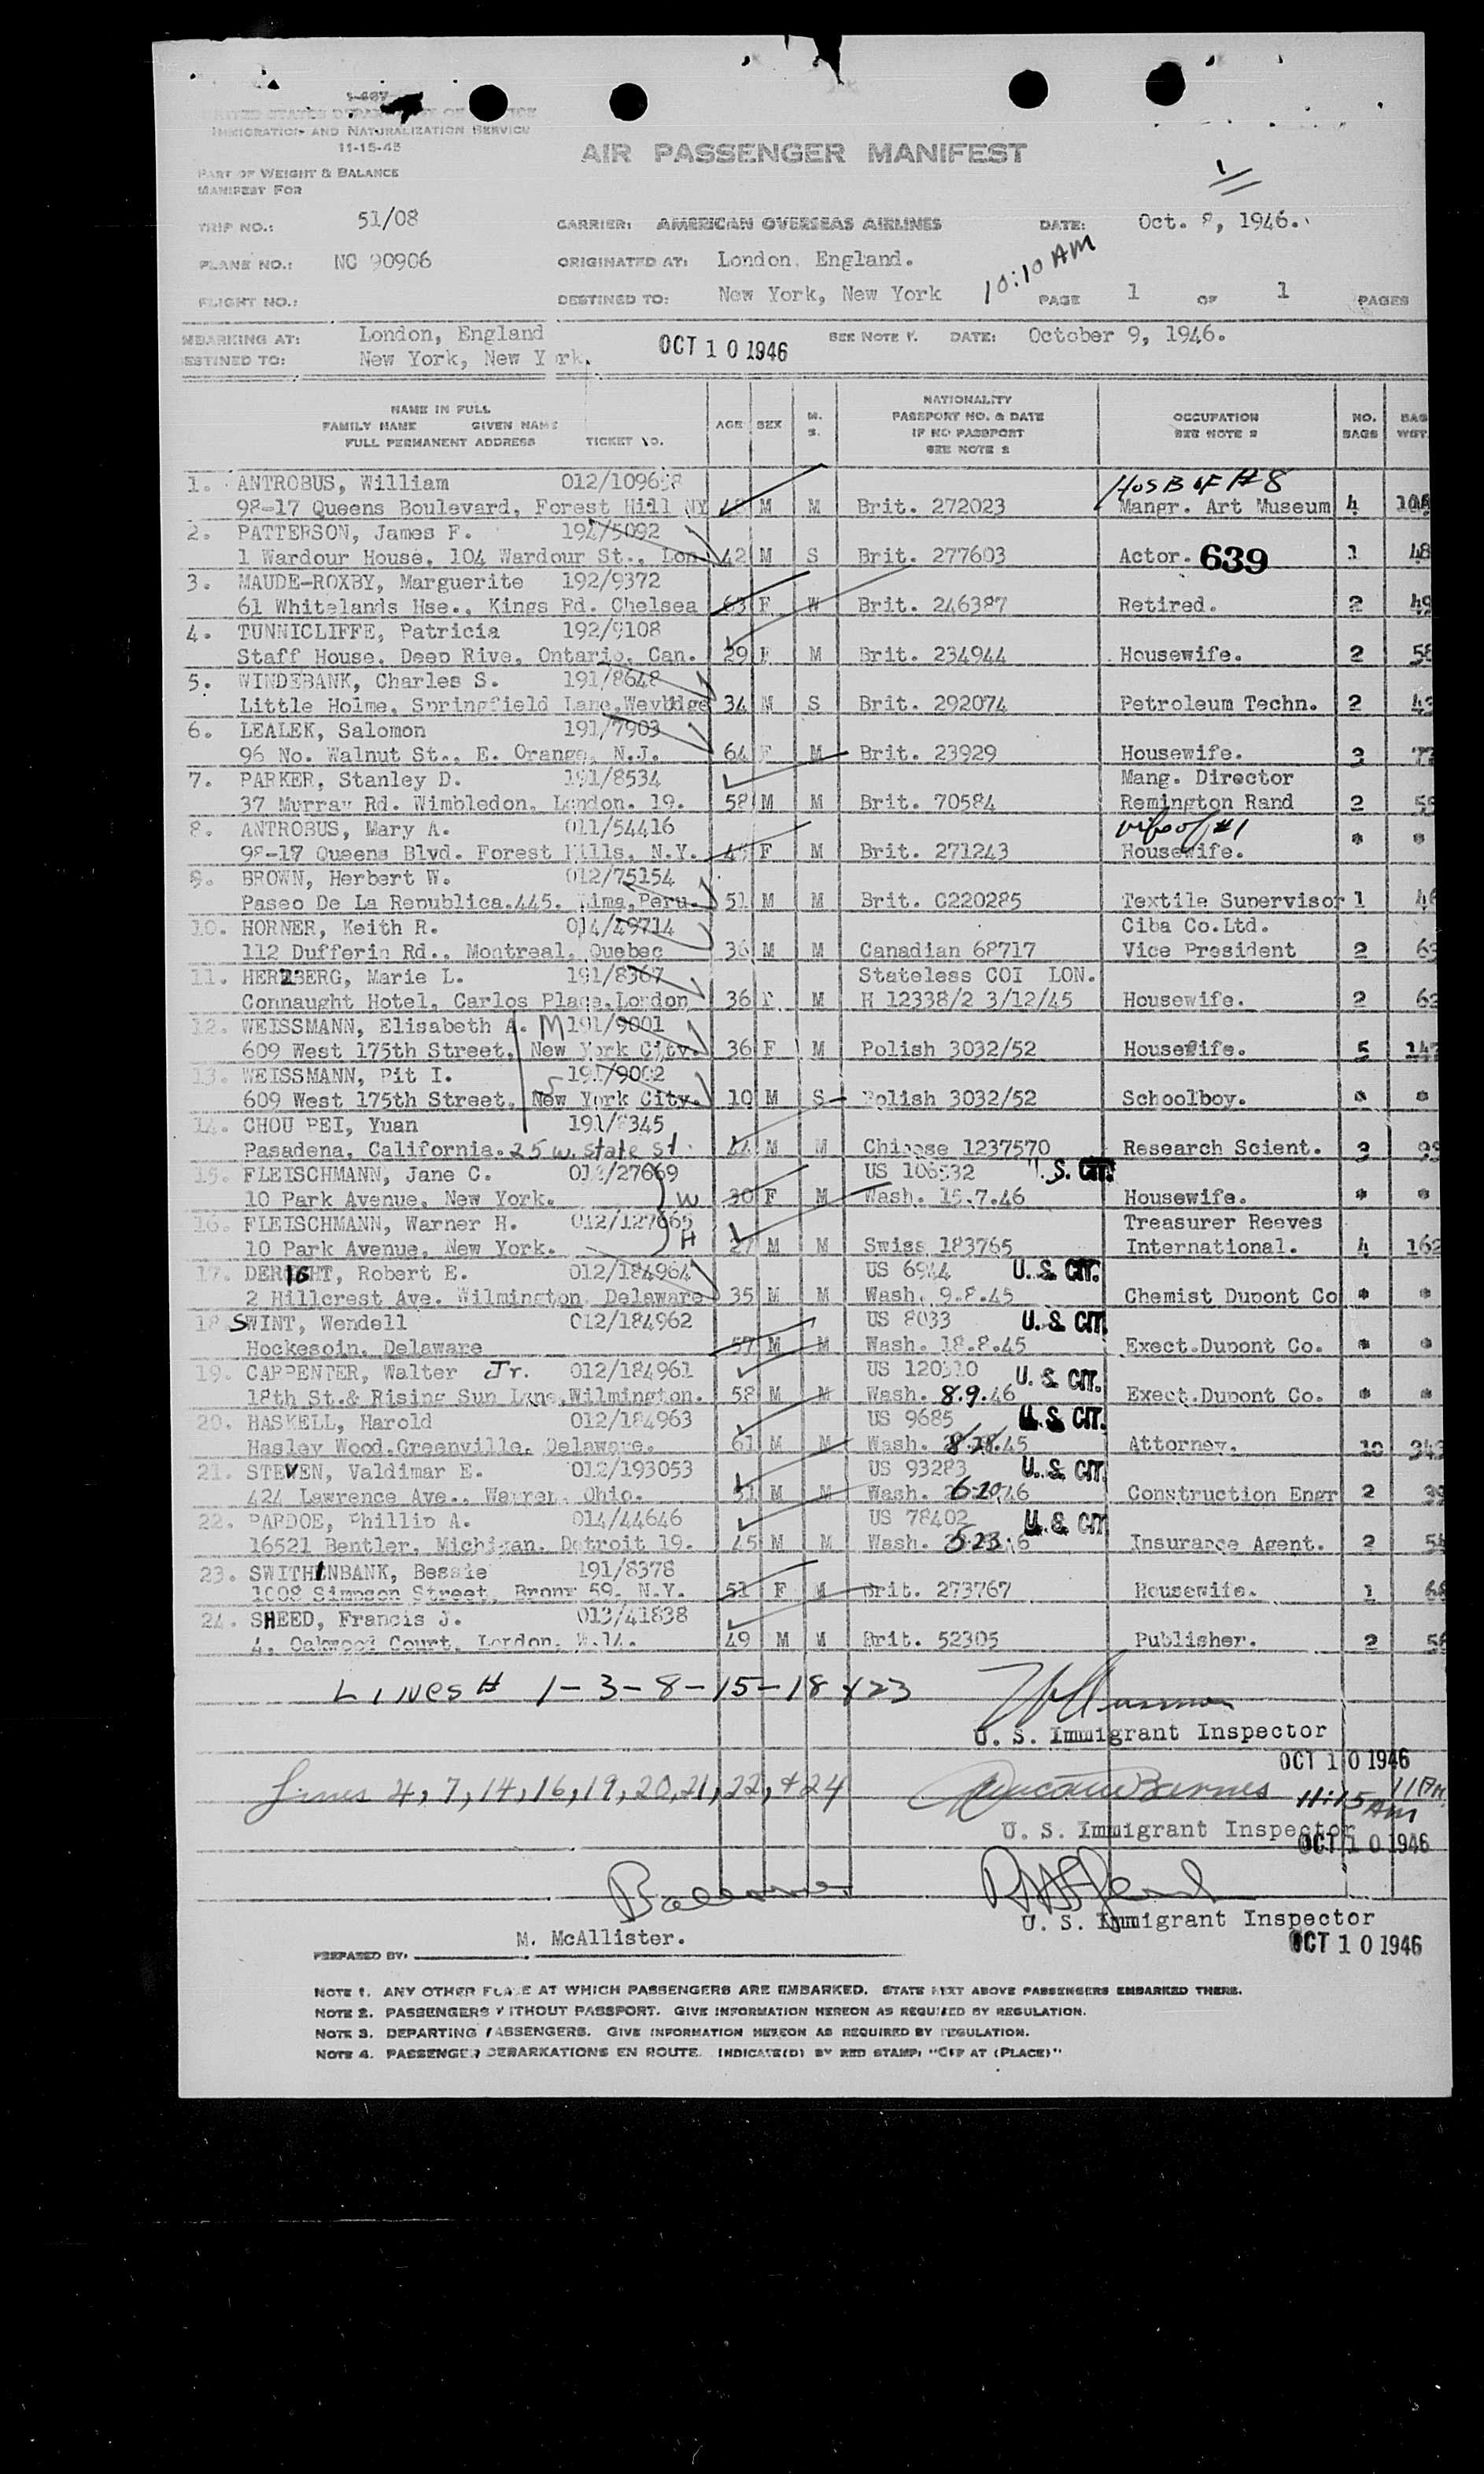 1-487
UNITED STATES DEPARTMENT OF JUSTICE
IMMIGRATION AND NATURALIZATION SERVICE
11-15-45
AIR PASSENGER MANIFEST
PART OF WEIGHT & BALANCE
MANIFEST FOR
1
TRIP NO.: 51/08 CARRIER: AMERICAN OVERSEAS AIRLINES DATE: Oct. 8, 1946.
PLANE NO.: NC 90906 ORIGINATED AT: London, England. 10:10 AM
FLIGHT NO.: DESTINED TO: New York, New York PAGE 1 OF 1 PAGES
MBARKING AT: London, England OCT 10 1946 SEE NOTE 1. DATE: October 9, 1946.
ESTINED TO: New York, New York.
NAME IN FULL
FAMILY NAME GIVEN NAME
FULL PERMANENT ADDRESS TICKET NO. AGE SEX M. S. NATIONALITY PASSPORT NO. & DATE IF NO PASSPORT SEE NOTE 2 OCCUPATION SEE NOTE 2 NO. BAGS BAG WGT.
1. ANTROBUS, William HUSB OF #8
98-17 Queens Boulevard, Forest Hill NY M M Brit. 272023 Mangr. Art Museum 4
2. PATTERSON, James F. 194/5092
1 Wardour House, 104 Wardour St., Lon. 42 M S Brit. 277603 Actor. 639 1 48
3. MAUDE-ROXBY, Marguerite 192/9372
61 Whitelands Hse., Kings Rd. Chelsea 63 F W Brit. 246387 Retired. 2 49
4. TUNNICLIFFE, Patricia 192/9108
Staff House, Deep Rive, Ontario, Can. 29 F M Brit. 234944 Housewife. 2 58
5. WINDEBANK, Charles S. 191/8648
Little Holme, Springfield Lane,Weybridge 34 M S Brit. 292074 Petroleum Techn. 2
6. LEALEK, Salomon 191/7903
96 No. Walnut St., E. Orange, N.J. 64 F M Brit. 23929 Housewife. 3
7. PARKER, Stanley D. 191/8534 Mang. Director
37 Murray Rd. Wimbledon, London. 19. 58 M M Brit. 70584 Remington Rand 2
8. ANTROBUS, Mary A. 011/54416 wife of #1
98-17 Queens Blvd. Forest Hills, N.Y. F M Brit. 271243 Housewife. * *
9. BROWN, Herbert W. 012/75154
Paseo De La Republica.445. Lima,Peru. 51 M M Brit. C220285 Textile Supervisor 1
10. HORNER, Keith R. 014/49714 Ciba Co.Ltd.
112 Dufferin Rd., Montreal, Quebec 36 M M Canadian 68717 Vice President 2
11. HERZBERG, Marie L. 191/8367 Stateless COI LON.
Connaught Hotel, Carlos Place,London 36 F M H 12338/2 3/12/45 Housewife. 2 62
12. WEISSMANN, Elisabeth A. M 191/9001
609 West 175th Street, New York City. 36 F M Polish 3032/52 Housewife. 5
13. WEISSMANN, Pit I. S 191/9002
609 West 175th Street, New York City. 10 M S Polish 3032/52 Schoolboy. * *
14. CHOU PEI, Yuan 191/8345
Pasadena, California. 25 W. State St. 44 M M Chinese 1237570 Research Scient. 3
15. FLEISCHMANN, Jane C. 012/27669 US 106532 U.S. CIT.
10 Park Avenue, New York. W 30 F M Wash. 15.7.46 Housewife. * *
16. FLEISCHMANN, Warner H. 012/127665 Treasurer Reeves
10 Park Avenue, New York. H 27 M M Swiss 183765 International. 4 162
17. DERIGHT, Robert E. 012/184964 US 6944 U.S. CIT.
2 Hillcrest Ave. Wilmington, Delaware 35 M M Wash. 9.8.45 Chemist Dupont Co * *
18. SWINT, Wendell 012/184962 US 8033 U.S. CIT.
Hockesoin, Delaware 57 M M Wash. 18.8.45 Exect.Dupont Co. * *
19. CARPENTER, Walter Jr. 012/184961 US 120310 U.S. CIT.
18th St.& Rising Sun Lane,Wilmington. 58 M M Wash. 8.9.46 Exect.Dupont Co. * *
20. HASKELL, Harold 012/184963 US 9685 U.S. CIT.
Hasley Wood,Greenville, Delaware. 61 M M Wash. Attorney. 10 343
21. STEVEN, Valdimar E. 012/193053 US 93283 U.S. CIT.
424 Lawrence Ave., Warren, Ohio. 51 M M Wash. 6.20.46 Construction Engr 2 39
22. PARDOE, Phillip A. 014/44646 US 78402 U.S. CIT
16521 Bentler, Michigan, Detroit 19. 45 M M Wash. 5.23.46 Insurance Agent. 2
23. SWITHINBANK, Bessie 191/8378
1008 Simpson Street, Bronx 59, N.Y. 51 F M Brit. 273767 Housewife. 1
24. SHEED, Francis J. 013/41838
4, Oakwood Court, London, W.14. 49 M M Brit. 52305 Publisher. 2
LINES # 1-3-8-15-18 & 23
U. S. Immigrant Inspector
OCT 10 1946
Lines 4, 7, 14, 16, 19, 20, 21, 22, + 24 Barnes 11:15 AM
U. S. Immigrant Inspector
OCT 10 1946
U. S. Immigrant Inspector
OCT 10 1946
PREPARED BY: M. McAllister.
NOTE 1. ANY OTHER PLACE AT WHICH PASSENGERS ARE EMBARKED. STATE NEXT ABOVE PASSENGERS EMBARKED THERE.
NOTE 2. PASSENGERS WITHOUT PASSPORT. GIVE INFORMATION HEREON AS REQUIRED BY REGULATION.
NOTE 3. DEPARTING PASSENGERS. GIVE INFORMATION HEREON AS REQUIRED BY REGULATION.
NOTE 4. PASSENGER DEBARKATIONS EN ROUTE. INDICATE(D) BY RED STAMP: "OFF AT (PLACE)"